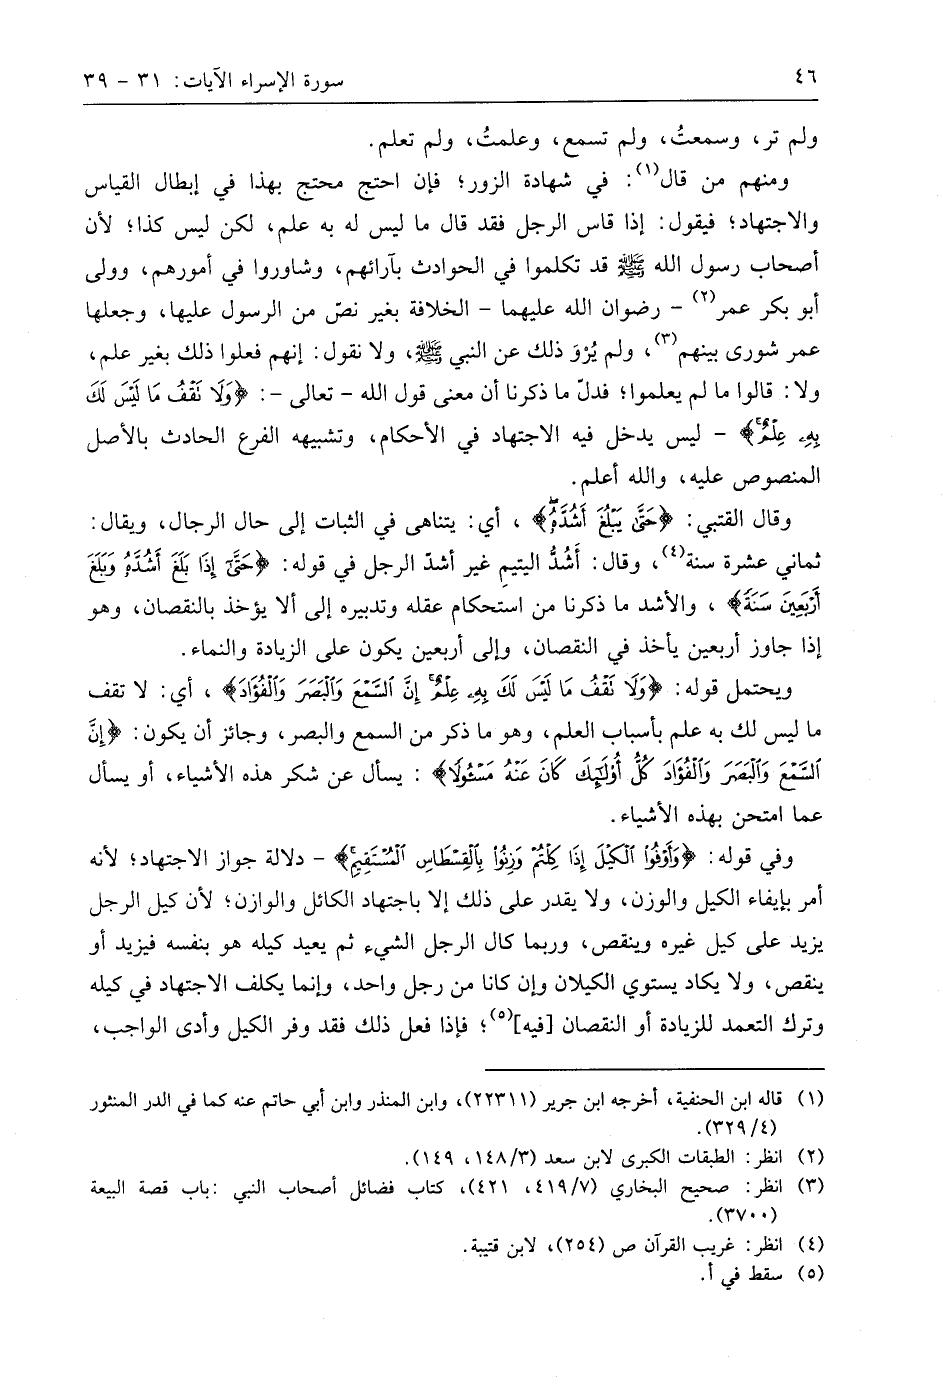 ٤٦ سورة الإسراء الآيات: ٣١ - ٣٩
ولم تر، وسمعتُ، ولم تسمع، وعلمتُ، ولم تعلم.
ومنهم من قال(١): في شهادة الزور؛ فإن احتج محتج بهذا في إبطال القياس
والاجتهاد؛ فيقول: إذا قاس الرجل فقد قال ما ليس له به علم، لكن ليس كذا؛ لأن
أصحاب رسول الله ﷺ قد تكلموا في الحوادث بآرائهم، وشاوروا في أمورهم، وولى
أبو بكر عمر(٢) - رضوان الله عليهما - الخلافة بغير نصّ من الرسول عليها، وجعلها
عمر شورى بينهم(٣)، ولم يُرْوَ ذلك عن النبي ﷺ، ولا نقول: إنهم فعلوا ذلك بغير علم،
ولا: قالوا ما لم يعلموا؛ فدلّ ما ذكرنا أن معنى قول الله - تعالى -: ﴿وَلَا نَقْفُ مَا لَيْسَ لَكَ
بِهِۦ عِلْمٌ﴾ - ليس يدخل فيه الاجتهاد في الأحكام، وتشبيهه الفرع الحادث بالأصل
المنصوص عليه، والله أعلم.
وقال القتبي: ﴿حَتَّىٰ يَبْلُغَ أَشُدَّهُۥ﴾ ، أي: يتناهى في الثبات إلى حال الرجال، ويقال:
ثماني عشرة سنة(٤)، وقال: أَشُدُّ اليتيم غير أشدّ الرجل في قوله: ﴿حَتَّىٰٓ إِذَا بَلَغَ أَشُدَّهُۥ وَبَلَغَ
أَرْبَعِينَ سَنَةً﴾ ، والأشد ما ذكرنا من استحكام عقله وتدبيره إلى ألا يؤخذ بالنقصان، وهو
إذا جاوز أربعين يأخذ في النقصان، وإلى أربعين يكون على الزيادة والنماء.
ويحتمل قوله: ﴿وَلَا نَقْفُ مَا لَيْسَ لَكَ بِهِۦ عِلْمٌ إِنَّ ٱلسَّمْعَ وَٱلْبَصَرَ وَٱلْفُؤَادَ﴾ ، أي: لا تقف
ما ليس لك به علم بأسباب العلم، وهو ما ذكر من السمع والبصر، وجائز أن يكون: ﴿إِنَّ
ٱلسَّمْعَ وَٱلْبَصَرَ وَٱلْفُؤَادَ كُلُّ أُو۟لَٰٓئِكَ كَانَ عَنْهُ مَسْـُٔولًا﴾ : يسأل عن شكر هذه الأشياء، أو يسأل
عما امتحن بهذه الأشياء.
وفي قوله: ﴿وَأَوْفُوا۟ ٱلْكَيْلَ إِذَا كِلْتُمْ وَزِنُوا۟ بِٱلْقِسْطَاسِ ٱلْمُسْتَقِيمِ﴾ - دلالة جواز الاجتهاد؛ لأنه
أمر بإيفاء الكيل والوزن، ولا يقدر على ذلك إلا باجتهاد الكائل والوازن؛ لأن كيل الرجل
يزيد على كيل غيره وينقص، وربما كال الرجل الشيء ثم يعيد كيله هو بنفسه فيزيد أو
ينقص، ولا يكاد يستوي الكيلان وإن كانا من رجل واحد، وإنما يكلف الاجتهاد في كيله
وترك التعمد للزيادة أو النقصان [فيه](٥)؛ فإذا فعل ذلك فقد وفر الكيل وأدى الواجب،
(١) قاله ابن الحنفية، أخرجه ابن جرير (٢٢٣١١)، وابن المنذر وابن أبي حاتم عنه كما في الدر المنثور
(٣٢٩/٤).
(٢) انظر: الطبقات الكبرى لابن سعد (١٤٨/٣، ١٤٩).
(٣) انظر: صحيح البخاري (٤١٩/٧، ٤٢١)، كتاب فضائل أصحاب النبي :باب قصة البيعة
(٣٧٠٠).
(٤) انظر: غريب القرآن ص (٢٥٤)، لابن قتيبة.
(٥) سقط في أ.